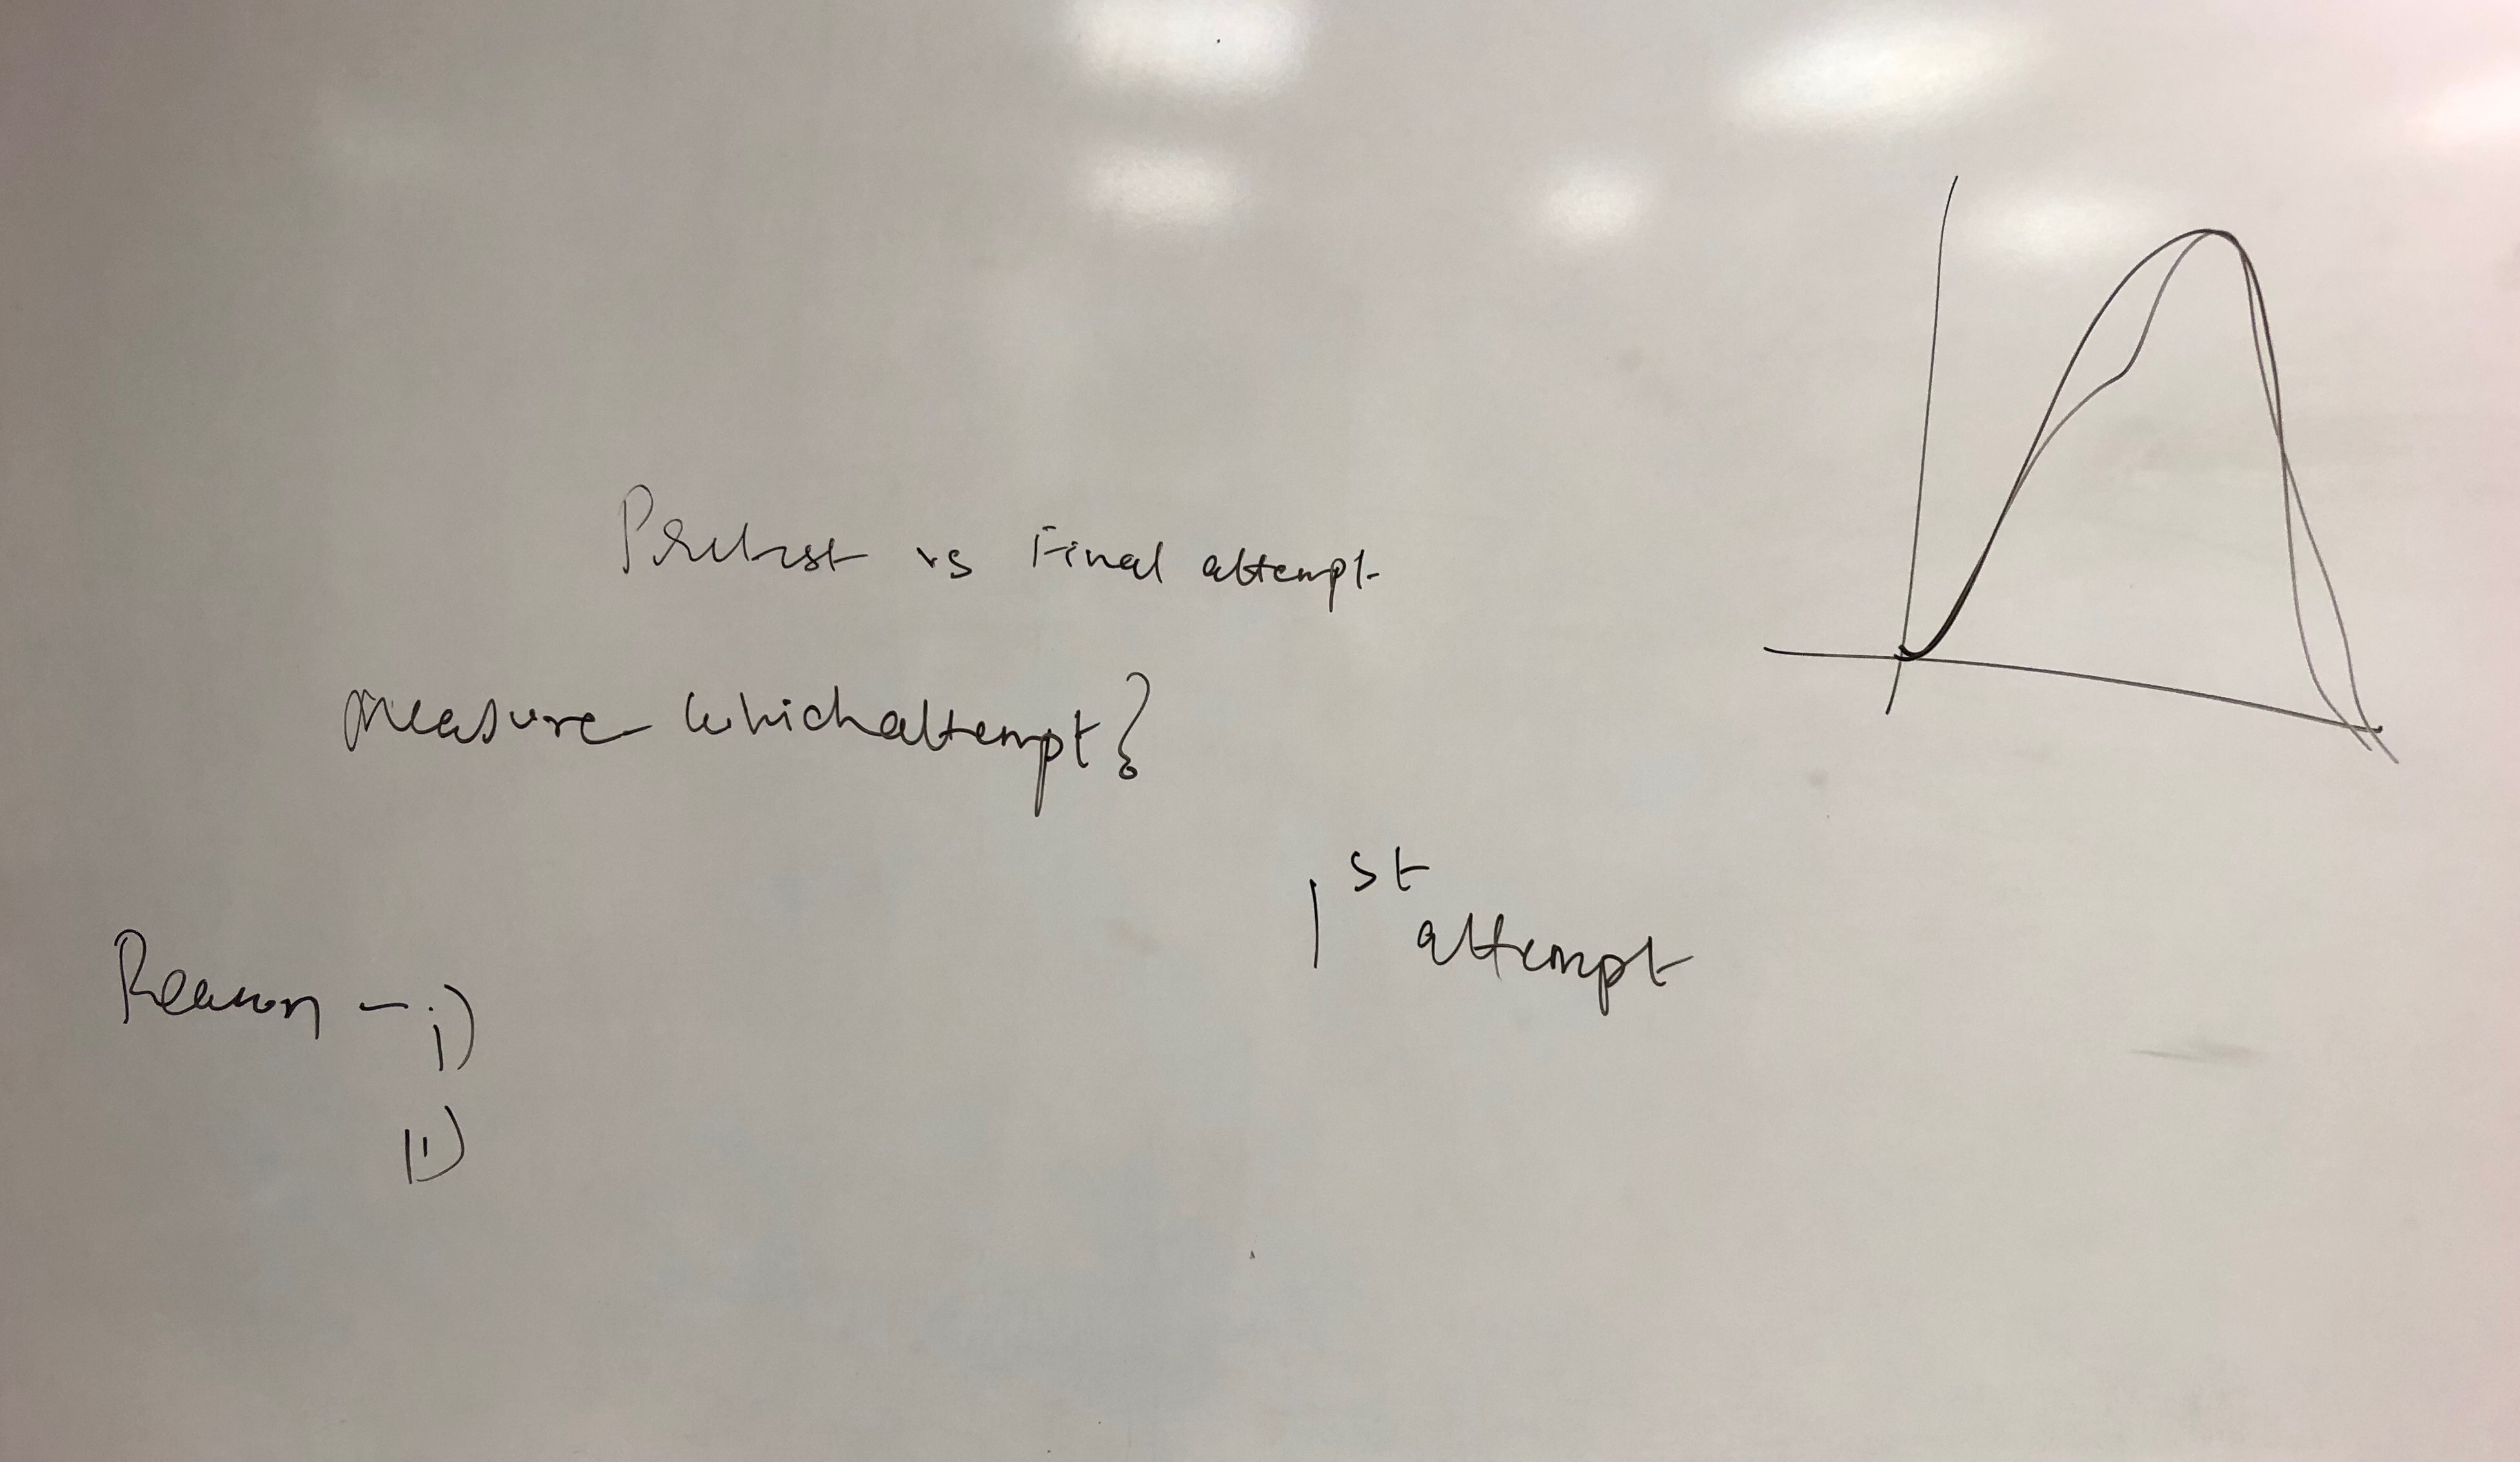 Pretest vs Final attempt
measure which attempt?
1st attempt
Reason - i)
ii)